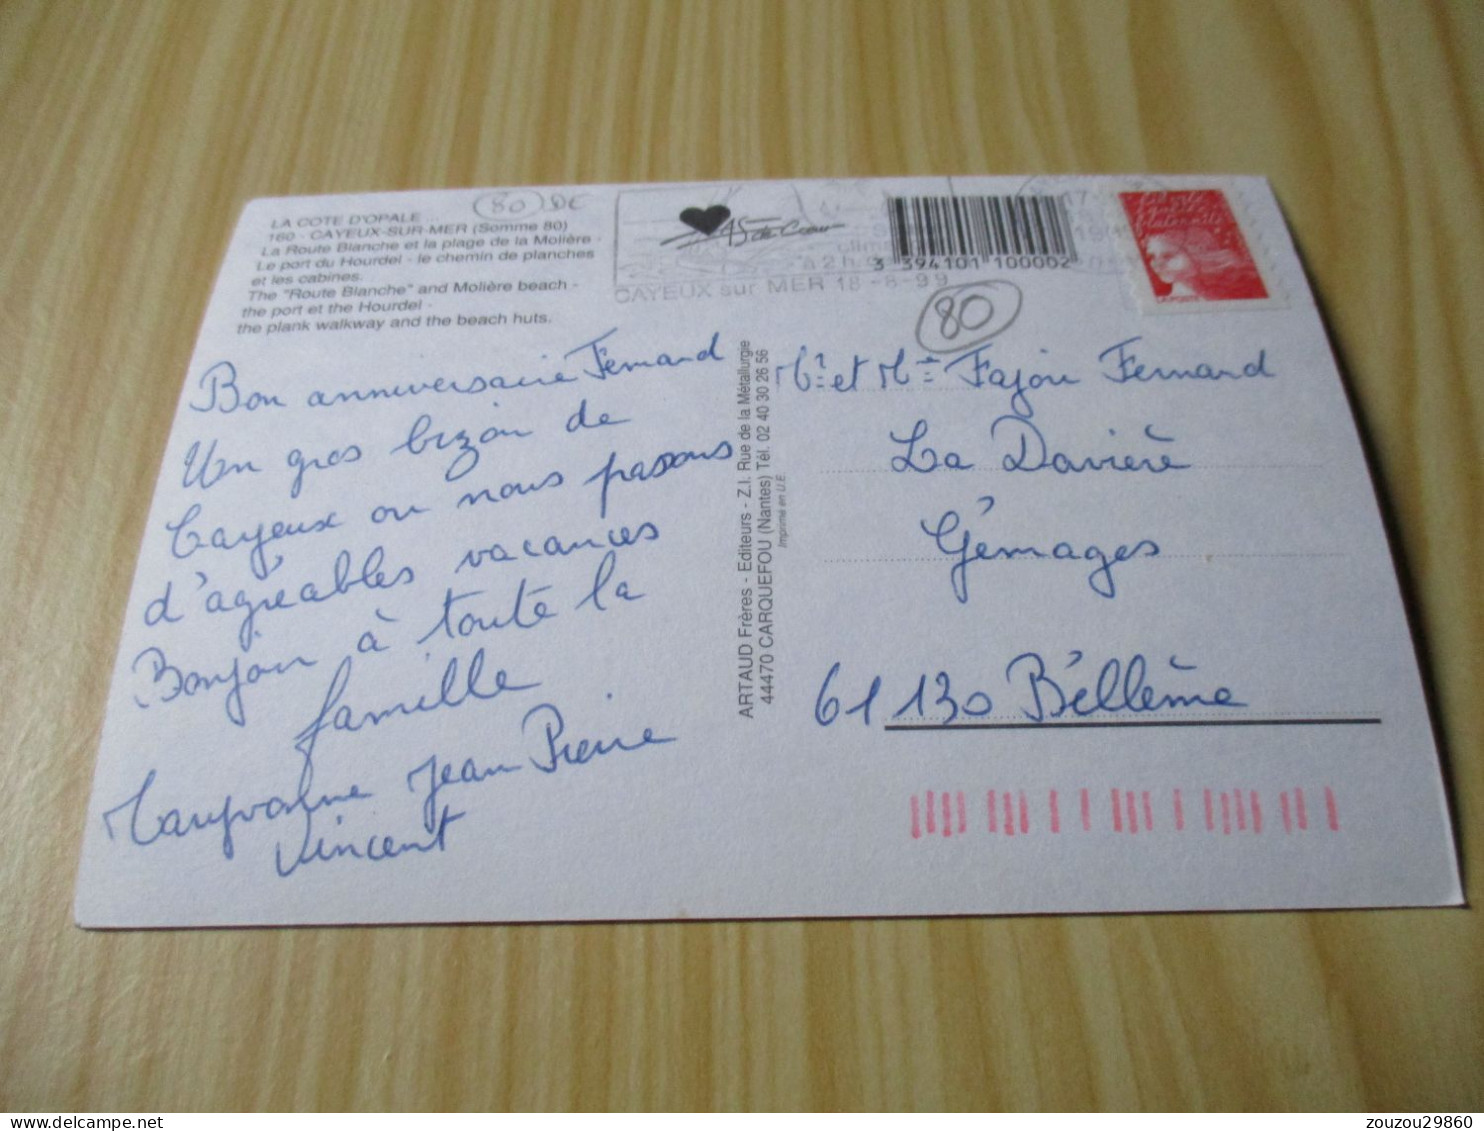 LA COTE D'OPALE ...
160 - CAYEUX-SUR-MER (Somme 80)
La Route Blanche et la plage de la Molière -
Le port du Hourdel - le chemin de planches
et les cabines.
The "Route Blanche" and Molière beach -
the port et the Hourdel -
the plank walkway and the beach huts.
80 DE
CAYEUX sur MER 18-8-99
à 2h
3 394101 100002
80
LA POSTE
Bon anniversaire Fernand
Un gros bizou de
Cayeux ou nous passons
d'agréables vacances
Bonjour à toute la
famille
Maryvonne Jean Pierre
Vincent
ARTAUD Frères - Editeurs - Z.I. Rue de la Métallurgie
44470 CARQUEFOU (Nantes) Tél. 02 40 30 26 56
Imprimé en U.E.
Mr et Mme Fajou Fernand
La Davière
Gémages
61130 Bellême
zouzou29860